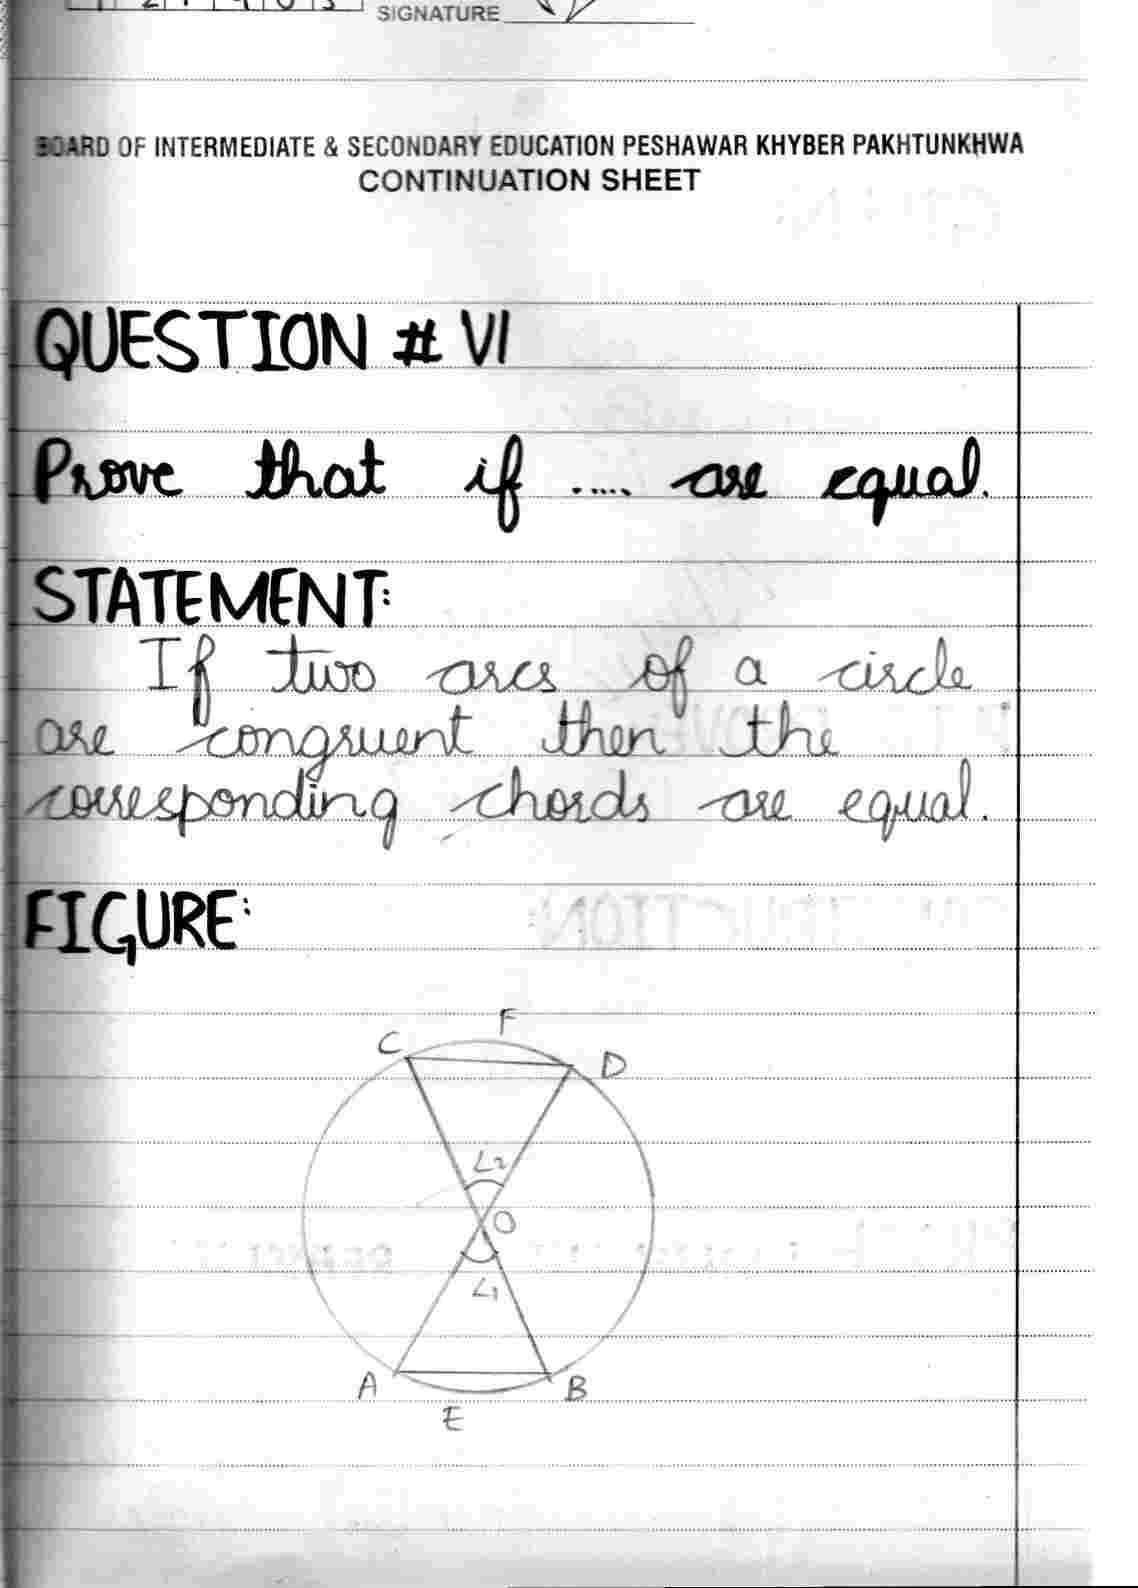 SIGNATURE
BOARD OF INTERMEDIATE & SECONDARY EDUCATION PESHAWAR KHYBER PAKHTUNKHWA
CONTINUATION SHEET
QUESTION # VI
Prove that if ..... are equal.
STATEMENT:
If two arcs of a circle
are congruent then the
corresponding chords are equal.
FIGURE:
F
C
D
∠2
O
∠1
A
B
E